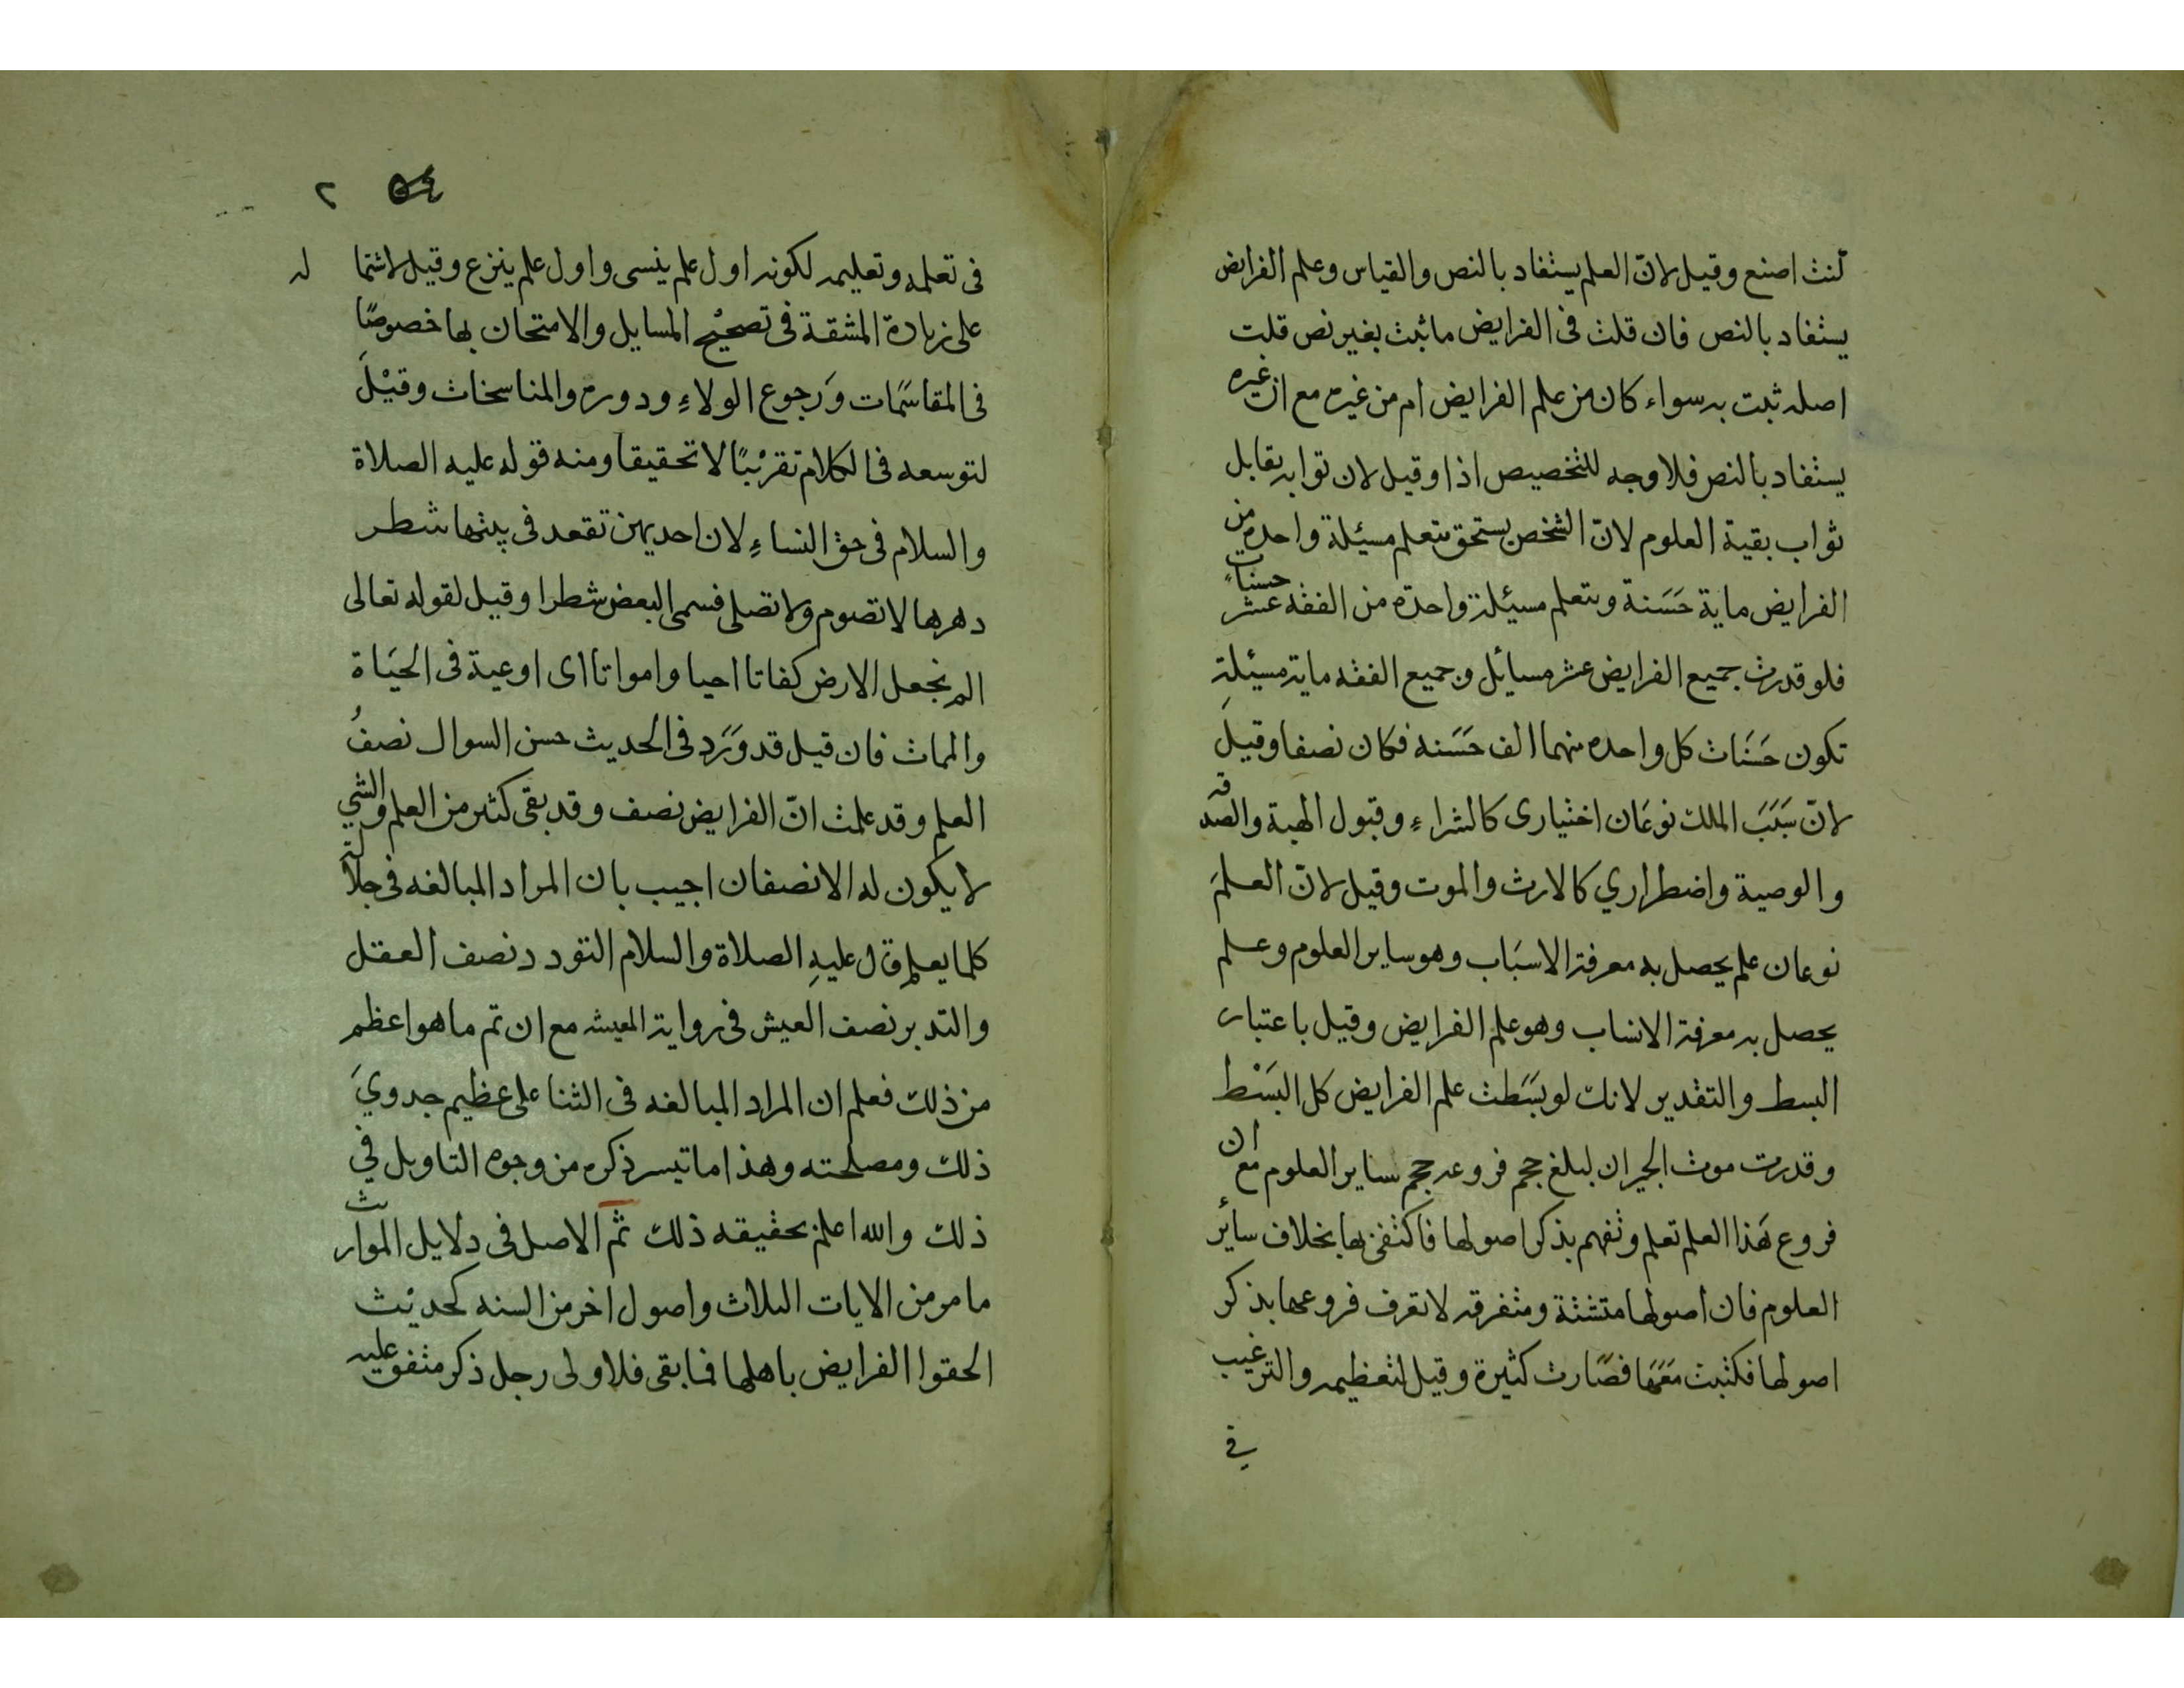 كنت اصنع وقيل لانّ العلم يستفاد بالنص والقياس وعلم الفرايض
يستفاد بالنص فان قلت فى الفرايض ما ثبت بغير نص قلت
اصله ثبت به سواء كان من علم الفرايض ام من غيره مع ان غيره
يستفاد بالنص فلا وجه للتخصيص اذا وقيل لان ثوابه يقابل
ثواب بقية العلوم لانّ الشخص يستحق بتعلم مسيئلة واحده من
الفرايض ماية حَسَنة وبتعلم مسيئلة واحدة من الفقه عشر حسنات
فلو قدرت جميع الفرايض عشر مسائل وجميع الفقه ماية مسيئلة
تكون حَسَنَات كل واحده منهما الف حَسَنه فكان نصفا وقيلَ
لانّ سَبَبَ الملك نوعَان اختيارى كالشراءِ وقبول الهبة والصدقه
والوصية واضطراري كالارث والموت وقيل لانّ العلمَ
نوعان علم يحصل به معرفة الاسبَاب وهو ساير العلوم وعلم
يحصل به معرفة الانساب وهو علم الفرايض وقيل باعتبار
البسط والتقدير لانك لو بسَطت علم الفرايض كل البَسْط
وقدرت موت الجيران لبلغ حجم فروعه حجم ساير العلوم مع ان
فروع هَذا العلم تعلم وتفهم بذكر اصولها فاكتفى بها بخلاف سائر
العلوم فان اصولها متشتة ومتفرقه لا تعرف فروعها بذكر
اصولها فكتبت مَعَهَا فصَارت كثيرة وقيل لتعظيمه والترغيب
في
٥٤ ٢
فى تعلمه وتعليمه لكونه اول علم ينسى واول علم ينزع وقيل لاشتما له
على زيادة المشقة فى تصحيْح المسايل والامتحان بها خصوصًا
فى المقاسَمات وَرجوع الولاءِ ودوره والمناسخات وقيْلَ
لتوسعه فى الكلام تقريْبًا لا تحقيقا ومنه قوله عليه الصلاة
والسلام فى حق النساءِ لان احديهن تقعد فى بيتها شطر
دهرها لا تصوم ولا تصلى فسمى البعض شطرا وقيل لقوله تعالى
الم نجعل الارض كفاتا احيا وامواتا اى اوعية فى الحيَاة
والممات فان قيل قد وَرَد فى الحديث حسن السوال نصفُ
العلم وقد علمت انّ الفرايض نصف وقد بقى كثير من العلم والشي
لا يكون له الا نصفان اجيب بان المراد المبالغه فى جلالة
كلما يعلم قال عليهِ الصلاة والسلام التودد نصف العقل
والتدبر نصف العيش فى رواية المعيشه مع ان ثم ما هو اعظم
من ذلك فعلم ان المراد المبالغه فى الثنا على عظيم جدويَ
ذلك ومصلحته وهذا ما تيسر ذكره من وجوه التاويل في
ذلك والله اعلم بحقيقه ذلك ثم الاصل فى دلايل الموارث
ما مر من الايات الثلاث واصول اخر من السنه كحديْث
الحقوا الفرايض باهلها فما بقى فلاولى رجل ذكر متفق عليه